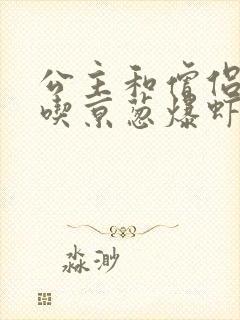 公主和僧侣
喫京葱爆虾
淼渺